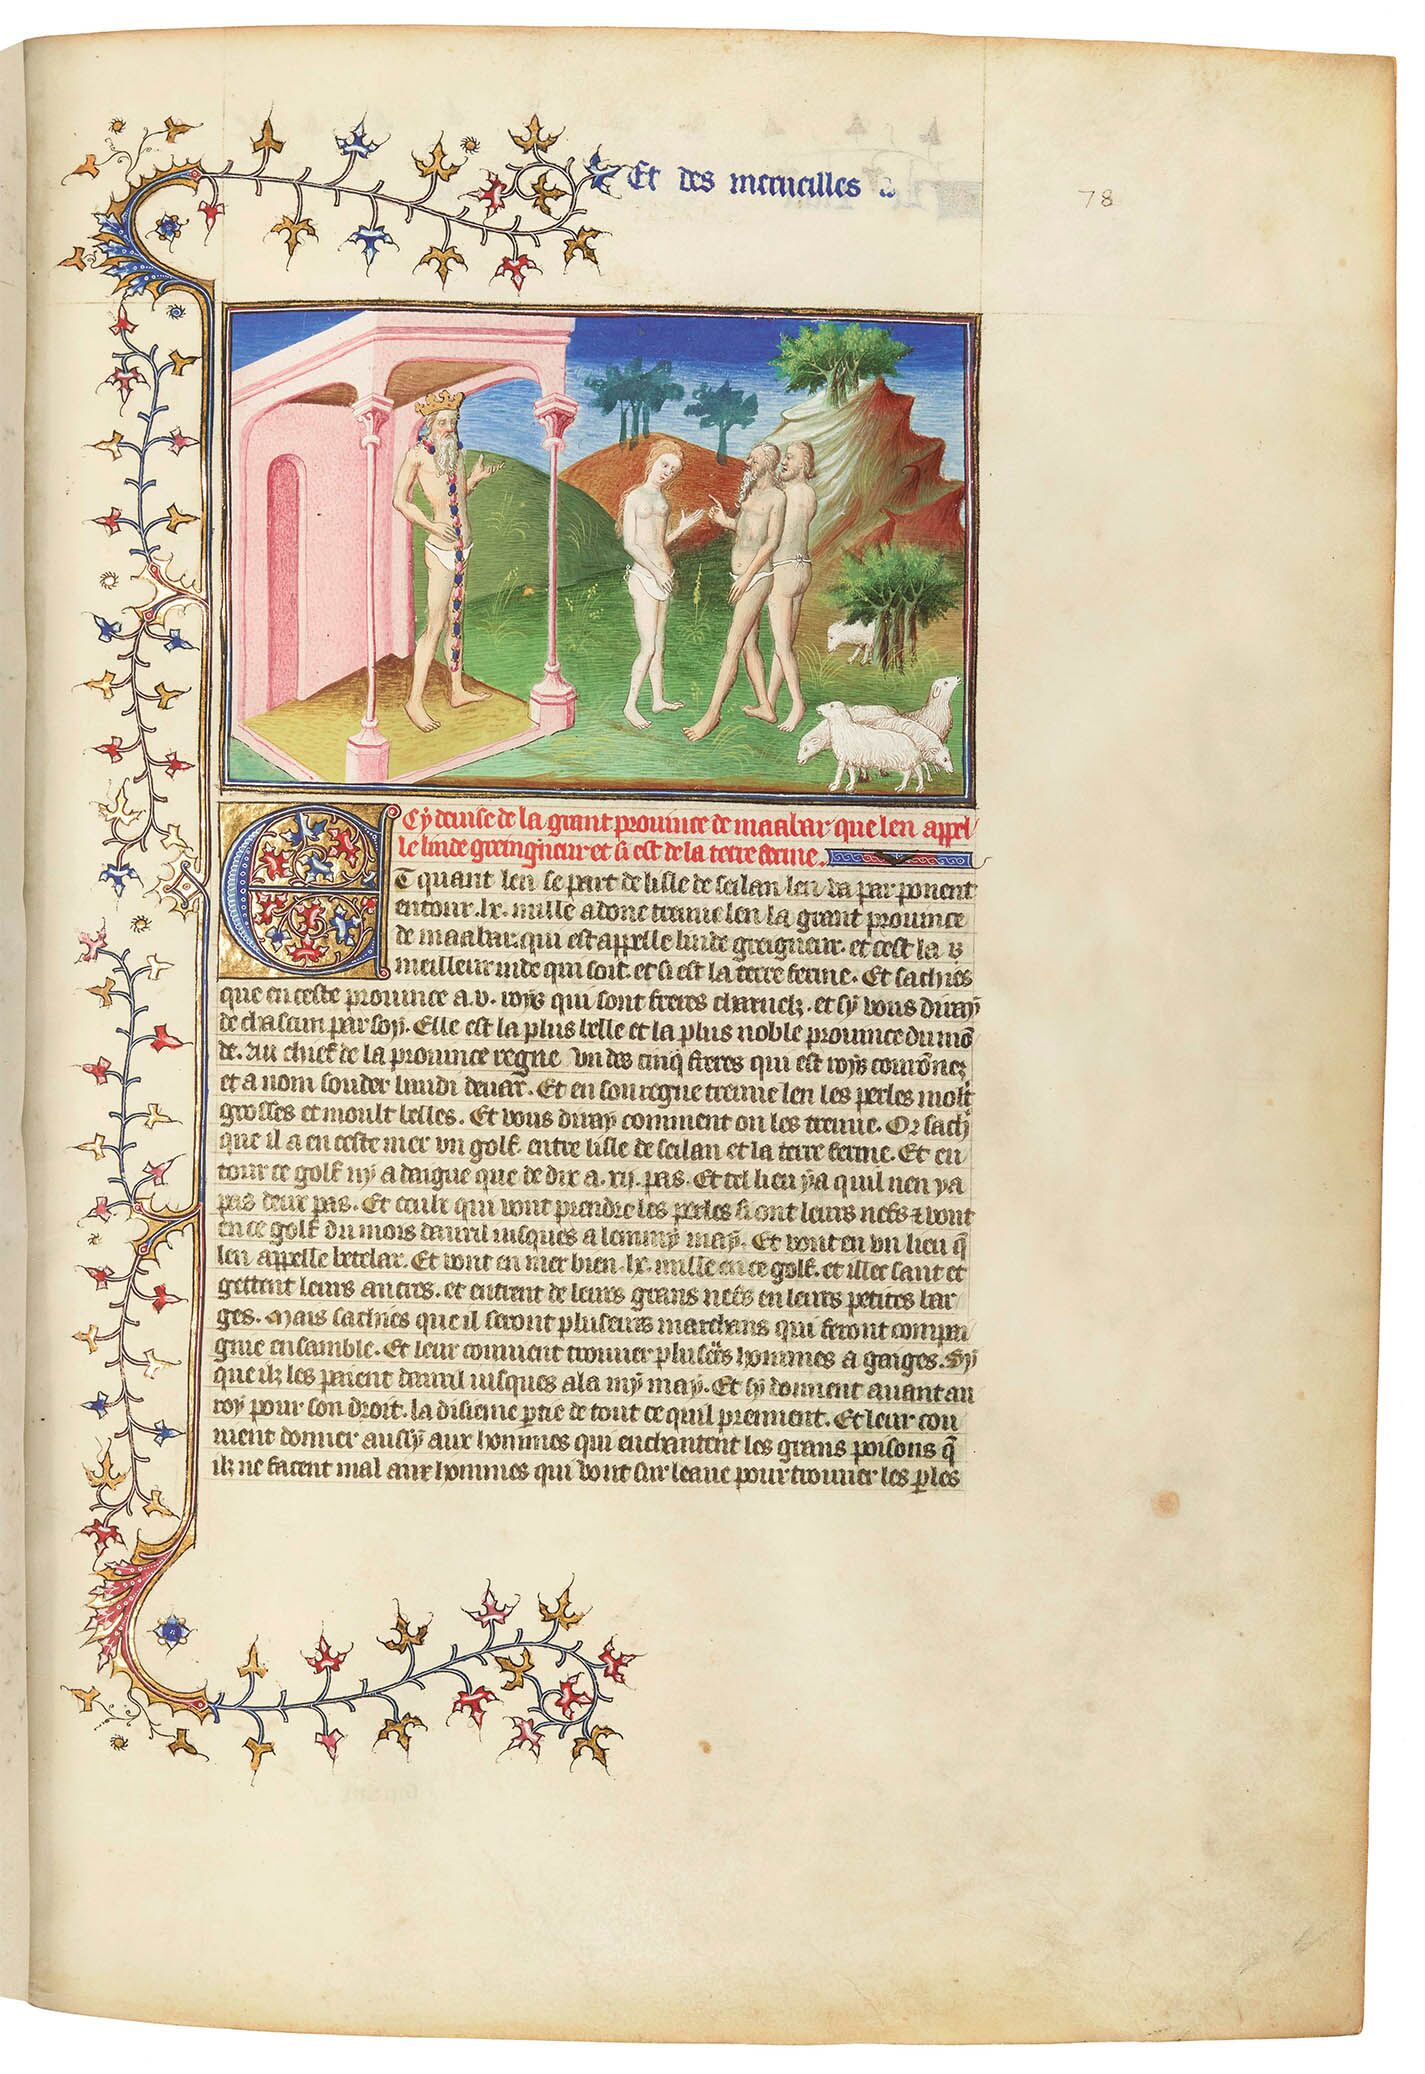 Et des merueilles
78
Cy deuise de la grant prouince de maabar que len appel
le linde greingneur et si est de la terre ferme.
Et quant len se part de lisle de seilan len va par ponent
entour .lx. mille adonc treuue len la grant prouince
de maabar. qui est appelle linde greigneur. et cest la
meilleur inde qui soit. et si est la terre ferme. Et sachies
que en ceste prouince a .v. roys qui sont freres charnelz. et sy vous diray
de chascun par soy. Elle est la plus belle et la plus noble prouince du mõ
de. Au chief de la prouince regne vn des cinq freres qui est roys couronnez
et a nom sonder bandi deuar. Et en son regne treuue len les perles molt
grosses et moult belles. Et vous diray comment on les treuue. Or sach
que il a en ceste mer vn golf. entre lisle de seilan et la terre ferme. Et en
tour ce golf ny a daigue que de dix a .xij. pas. Et tel lieu y a quil nen ya
pas deux pas. Et ceulx qui vont prendre les perles si ont leurs nefs & vont
en ce golf du mois dauril iusques a lemmy may. Et vont en vn lieu q̃
len appelle betelar. Et vont en mer bien .lx. mille en ce golf. et illec sont et
gettent leurs ancres. et entrent de leurs grans nefs en leurs petites bar
ges. Mais sachies que il seront pluseurs marchans qui feront compai
gnie ensamble. Et leur conuient trouuer pluseurs hommes a gaiges. Sy
que ilz les paient dauril iusques a la my may. Et sy donnent auant au
roy pour son droit. la disieme ptie de tout ce quil prennent. Et leur con
uient donner aussy aux hommes qui enchantent les grans poisons q̃
ilz ne facent mal aux hommes qui vont sur leaue pour trouuer les ples